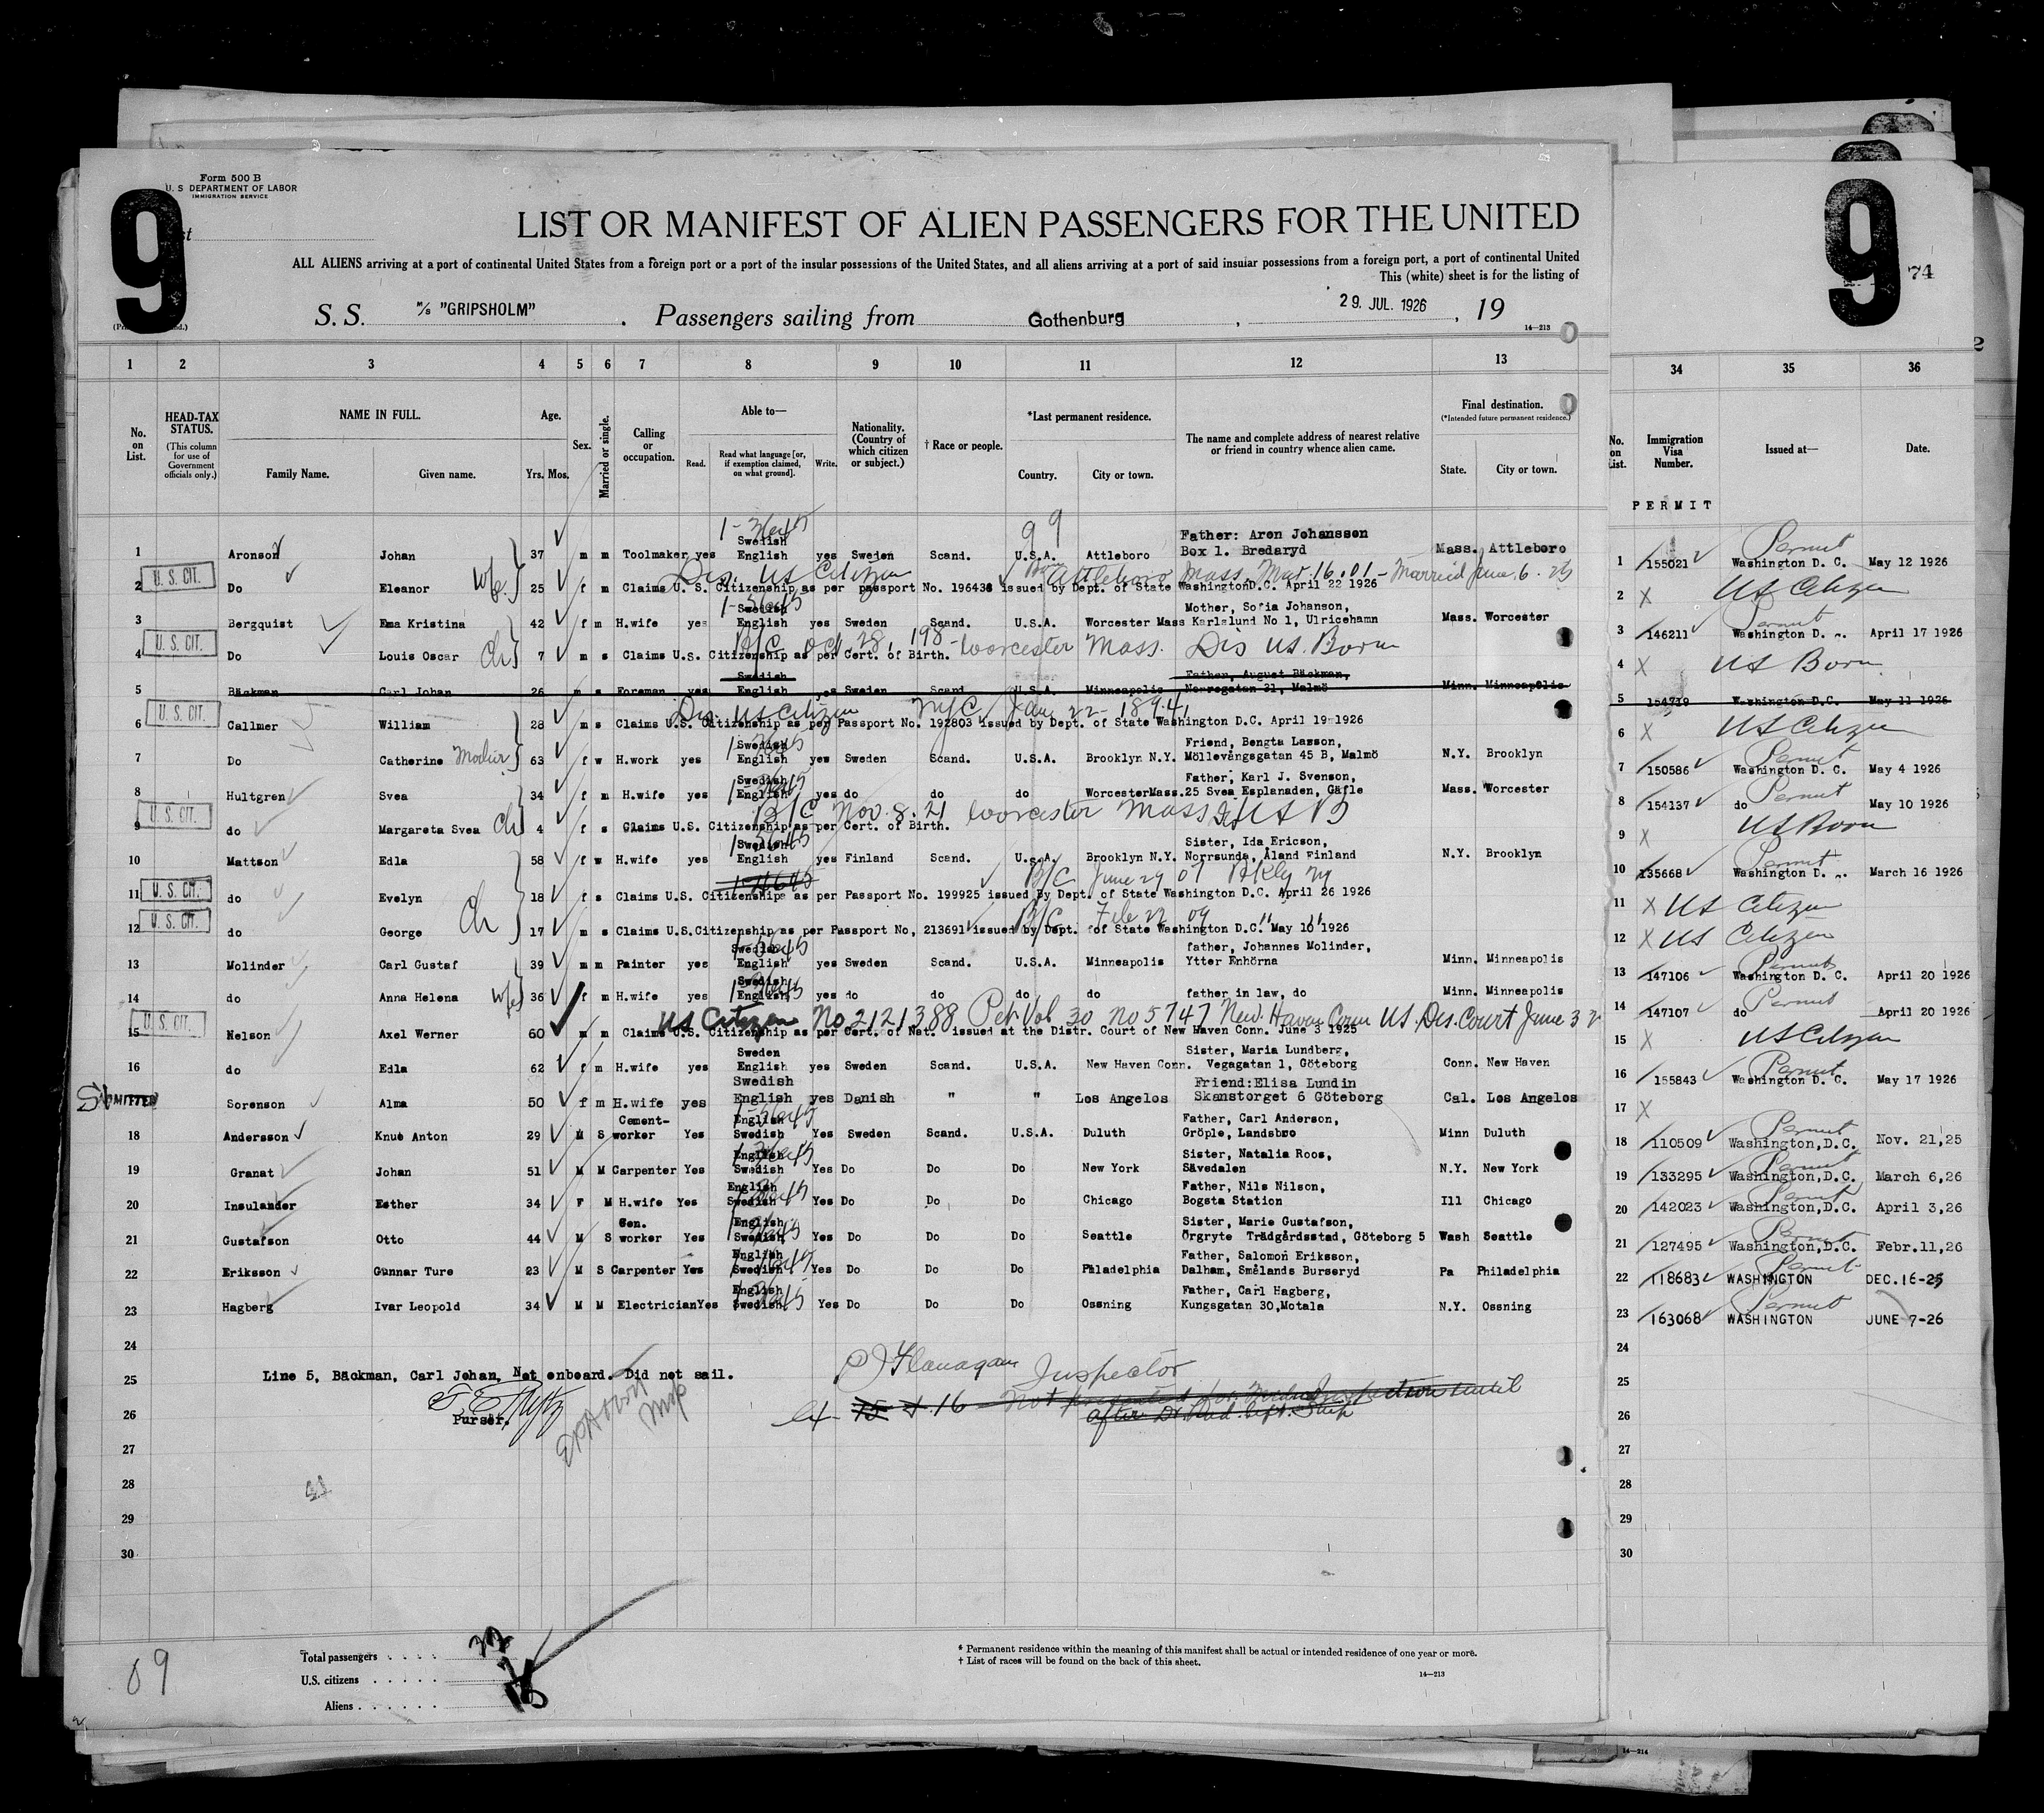 Form 500 B
U. S DEPARTMENT OF LABOR
IMMIGRATION SERVICE
9
9
74
LIST OR MANIFEST OF ALIEN PASSENGERS FOR THE UNITED
ALL ALIENS arriving at a port of continental United States from a foreign port or a port of the insular possessions of the United States, and all aliens arriving at a port of said insular possessions from a foreign port, a port of continental United
This (white) sheet is for the listing of
S. S. M/S "GRIPSHOLM" . Passengers sailing from Gothenburg , 29. JUL. 1926 , 19
14—213
1 2 3 4 5 6 7 8 9 10 11 12 13 34 35 36
No. on List.
HEAD-TAX STATUS.
(This column for use of Government officials only.)
NAME IN FULL.
Family Name. Given name.
Age.
Yrs. Mos.
Sex.
Married or single.
Calling or occupation.
Able to—
Read. Read what language [or, if exemption claimed, on what ground]. Write.
Nationality. (Country of which citizen or subject.)
† Race or people.
*Last permanent residence.
Country. City or town.
The name and complete address of nearest relative or friend in country whence alien came.
Final destination.
(*Intended future permanent residence.)
State. City or town.
No. on List.
Immigration Visa Number.
Issued at—
Date.
PERMIT
99
1 Aronson Johan 37 m m Toolmaker yes Swedish English yes Sweden Scand. U.S.A. Attleboro Father: Aron Johansson Box 1. Bredaryd Mass. Attleboro 1 155021 Permit Washington D. C. May 12 1926
Dis. US Citizen Born Attleboro Mass. Mar. 16. 01 - Married June. 6. 25
U. S. CIT. 2 Do Eleanor Wfe. 25 f m Claims U. S. Citizenship as per passport No. 196438 issued by Dept. of State Washington D.C. April 22 1926 2 X US Citizen
3 Bergquist Ema Kristina 42 f m H.wife yes Swedish English yes Sweden Scand. U.S.A. Worcester Mass Mother, Sofia Johanson, Karlslund No 1, Ulricehamn Mass. Worcester 3 146211 Permit Washington D. C. April 17 1926
B/C Oct. 28, 198- Worcester Mass. Dis US. Born
U. S. CIT. 4 Do Louis Oscar Ch 7 m s Claims U.S. Citizenship as per Cert. of Birth. 4 X US Born
5 Bäckman Carl Johan 26 m s Foreman yes Swedish English yes Sweden Scand. U.S.A. Minneapolis Father, August Bäckman, Norregatan 31, Malmö Minn. Minneapolis 5 154719 Washington D.C. May 11 1926
Dis. US Citizen NYC, Jan 22-1894
U. S. CIT. 6 Callmer William 28 m s Claims U.S. Citizenship as per Passport No. 192803 issued by Dept. of State Washington D.C. April 19 1926 6 X US Citizen
7 Do Catherine Mother 63 f w H.work yes Swedish English yes Sweden Scand. U.S.A. Brooklyn N.Y. Friend, Bengta Lasson, Möllevångsgatan 45 B, Malmö N.Y. Brooklyn 7 150586 Permit Washington D. C. May 4 1926
8 Hultgren Svea 34 f m H.wife yes Swedish English yes do do do Worcester Mass. Father, Karl J. Svenson, 25 Svea Esplanaden, Gäfle Mass. Worcester 8 154137 Permit do May 10 1926
B/C Nov. 8. 21 Worcester Mass
U. S. CIT. 9 do Margareta Svea Ch 4 f s Claims U.S. Citizenship as per Cert. of Birth. 9 X US Born
10 Mattson Edla 58 f w H.wife yes Swedish English yes Finland Scand. U.S.A. Brooklyn N.Y. Sister, Ida Ericson, Norrsunda, Åland Finland N.Y. Brooklyn 10 135668 Permit Washington D. C. March 16 1926
B/C June 29 07 Bklyn Ny
U. S. CIT. 11 do Evelyn 18 f s Claims U.S. Citizenship as per Passport No. 199925 issued By Dept. of State Washington D.C. April 26 1926 11 X US Citizen
B/C Feb 22 09 " "
U. S. CIT. 12 do George Ch 17 m s Claims U.S. Citizenship as per Passport No, 213691 issued by Dept. of State Washington D.C. May 10 1926 12 X US Citizen
13 Molinder Carl Gustaf 39 m m Painter yes Swedish English yes Sweden Scand. U.S.A. Minneapolis father, Johannes Molinder, Ytter Enhörna Minn. Minneapolis 13 147106 Permit Washington D. C. April 20 1926
14 do Anna Helena Wfe 36 f m H.wife yes Swedish English yes do do do do father in law, do Minn. Minneapolis 14 147107 Permit do April 20 1926
US Citizen No 2121388 Pet Vol 30 No 5747 New Haven Conn US. Dis. Court June 3
U. S. CIT. 15 Nelson Axel Werner 60 m m Claims U.S. Citizenship as per Cert. of Nat. issued at the Distr. Court of New Haven Conn. June 3 1925 15 X US Citizen
16 do Edla 62 f m H.wife yes Sweden English yes Sweden Scand. U.S.A. New Haven Conn. Sister, Maria Lundberg, Vegagatan 1, Göteborg Conn. New Haven 16 155843 Permit Washington D. C. May 17 1926
17 Sorenson Alma 50 f m H.wife yes Swedish English yes Danish " " Los Angelos Friend:Elisa Lundin Skanstorget 6 Göteborg Cal. Los Angelos 17 X
18 Andersson Knut Anton 29 M S Cement-worker Yes English Swedish Yes Sweden Scand. U.S.A. Duluth Father, Carl Anderson, Gröple, Landsbro Minn Duluth 18 110509 Permit Washington,D.C. Nov. 21,25
19 Granat Johan 51 M M Carpenter Yes English Swedish Yes Do Do Do New York Sister, Natalia Roos, Sävedalen N.Y. New York 19 133295 Permit Washington,D.C. March 6,26
20 Insulander Esther 34 F M H.wife Yes English Swedish Yes Do Do Do Chicago Father, Nils Nilson, Bogsta Station Ill Chicago 20 142023 Permit Washington,D.C. April 3,26
21 Gustafson Otto 44 M S Gen. worker Yes English Swedish Yes Do Do Do Seattle Sister, Marie Gustafson, Örgryte Trädgårdsstad, Göteborg 5 Wash Seattle 21 127495 Permit Washington,D.C. Febr.11,26
22 Eriksson Gunnar Ture 23 M S Carpenter Yes English Swedish Yes Do Do Do Philadelphia Father, Salomon Eriksson, Dalham, Smålands Burseryd Pa Philadelphia 22 118683 Permit WASHINGTON DEC.16-25
23 Hagberg Ivar Leopold 34 M M Electrician Yes English Swedish Yes Do Do Do Ossning Father, Carl Hagberg, Kungsgatan 30,Motala N.Y. Ossning 23 163068 Permit WASHINGTON JUNE 7-26
24 24
25 Line 5, Bäckman, Carl Johan, Not onboard. Did not sail. P J Flanagan Inspector 25
Purser.
26 15 & 16 Not presented for Medical Inspection until after Dr. had left Ship 26
27 27
28 28
29 29
30 30
Total passengers
U.S. citizens
Aliens
69
* Permanent residence within the meaning of this manifest shall be actual or intended residence of one year or more.
† List of races will be found on the back of this sheet.
14—213
14—214